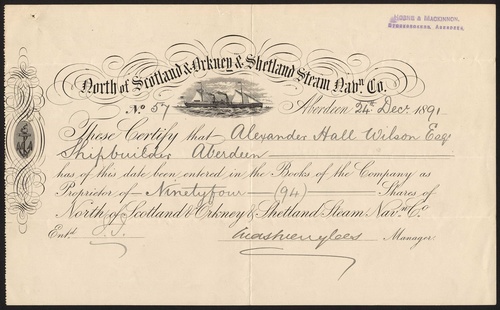 North of Scotland & Orkney & Shetland Steam Navn. Co.
No. 57
Aberdeen 24th Decr. 1891
These Certify that Alexander Hall Wilson Esqr
Shipbuilder Aberdeen
has of this date been entered in the Books of the Company as
Proprietor of Ninetyfour (94) Shares of
North of Scotland & Orkney & Shetland Steam Navn. Co.
Entd.
Manager